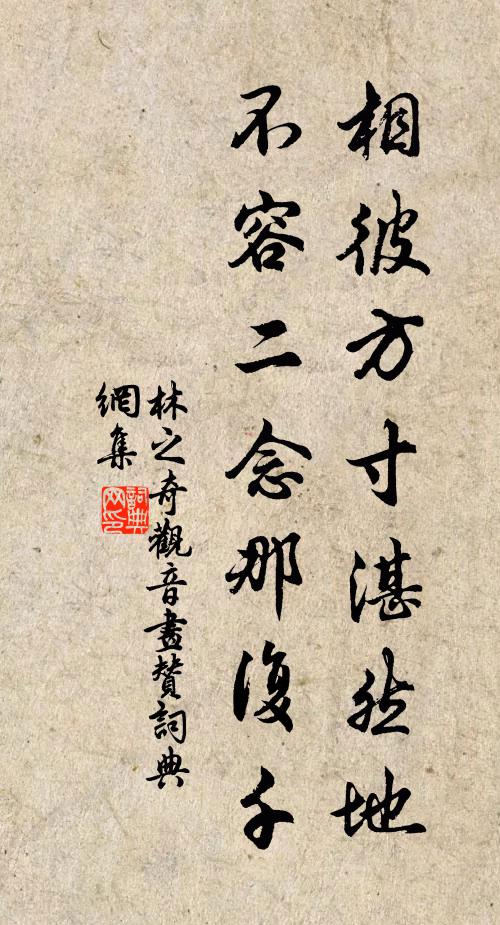 相彼方寸湛然地
不容二念那復千
林之奇觀音畫贊詞典
網集
詞典
网印